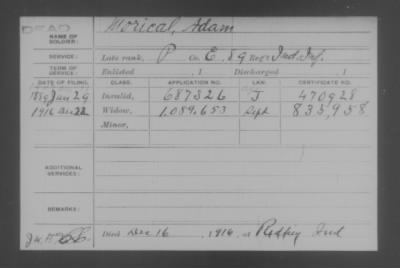 DEAD
NAME OF SOLDIER: Morical, Adam
SERVICE: Late rank, P Co. E, 89 Reg't Ind. Inf.
TERM OF SERVICE: Enlisted , 1 Discharged , 1
DATE OF FILING. CLASS. APPLICATION NO. LAW. CERTIFICATE NO.
1889 Jan 29 Invalid, 687326 J 470928
1916 22 Widow, 1.089.653 Sept 833,958
Minor,
ADDITIONAL SERVICES:
REMARKS:
Died Dec 16, 1916, at Redkey Ind